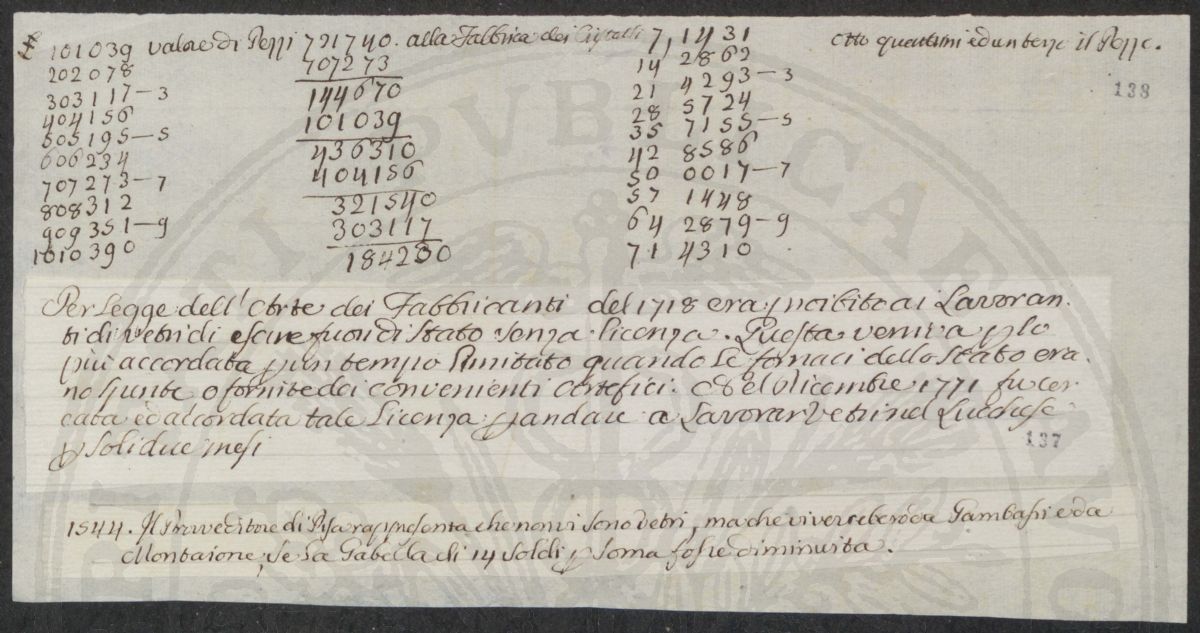 £ 101039 valore di Pezzi 721740. alla Fabbrica dei Cristalli 7, 1431 otto quattrini ed un terzo il Pezzo.
202078 707273 14 2862
303117-3 144670 21 4293-3
138
404156 101039 28 5724
505195-5 436310 35 7155-5
606234 404156 42 8586
707273-7 321540 50 0017-7
808312 303117 57 1448
909351-9 184230 64 2879-9
1010390 71 4310
Per Legge dell'Arte dei Fabbricanti del 1718 era proibito ai Lavoran-
ti di vetri di escire fuori di stato senza licenza. Questa veniva p lo
più accordata p un tempo limitato quando le fornaci dello stato era-
no spente o fornite dei convenienti Artefici. E del Dicembre 1771 fu cer-
cata ed accordata tale Licenza p andare a Lavorar Vetri nel Lucchese
p soli due mesi
137
1544. Il Provveditore di Pisa rappresenta che non vi sono vetri, ma che vi verrebero da Gambassi e da
Montaione, se la Gabella di 14 soldi p soma fosse diminuita.
PUBLICAE